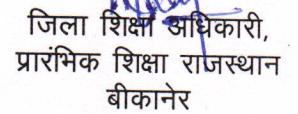 जिला शिक्षा अधिकारी,
प्रारंभिक शिक्षा राजस्थान
बीकानेर